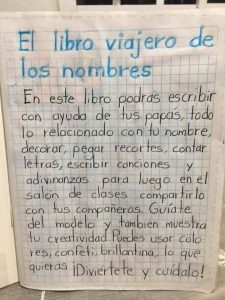 El libro viajero de
los nombres
En este libro podras escribir
con ayuda de tus papas, todo
lo relacionado con tu nombre,
decorar, pegar recortes, contar
letras, escribir canciones y
adivinanzas para luego en el
salon de clases compartirlo
con tus compañeras. Guiate
del modelo y tambien muestra
tu creatividad. Puedes usar colo
res, confeti, brillantina, lo que
quieras ¡Diviertete y cuídalo!